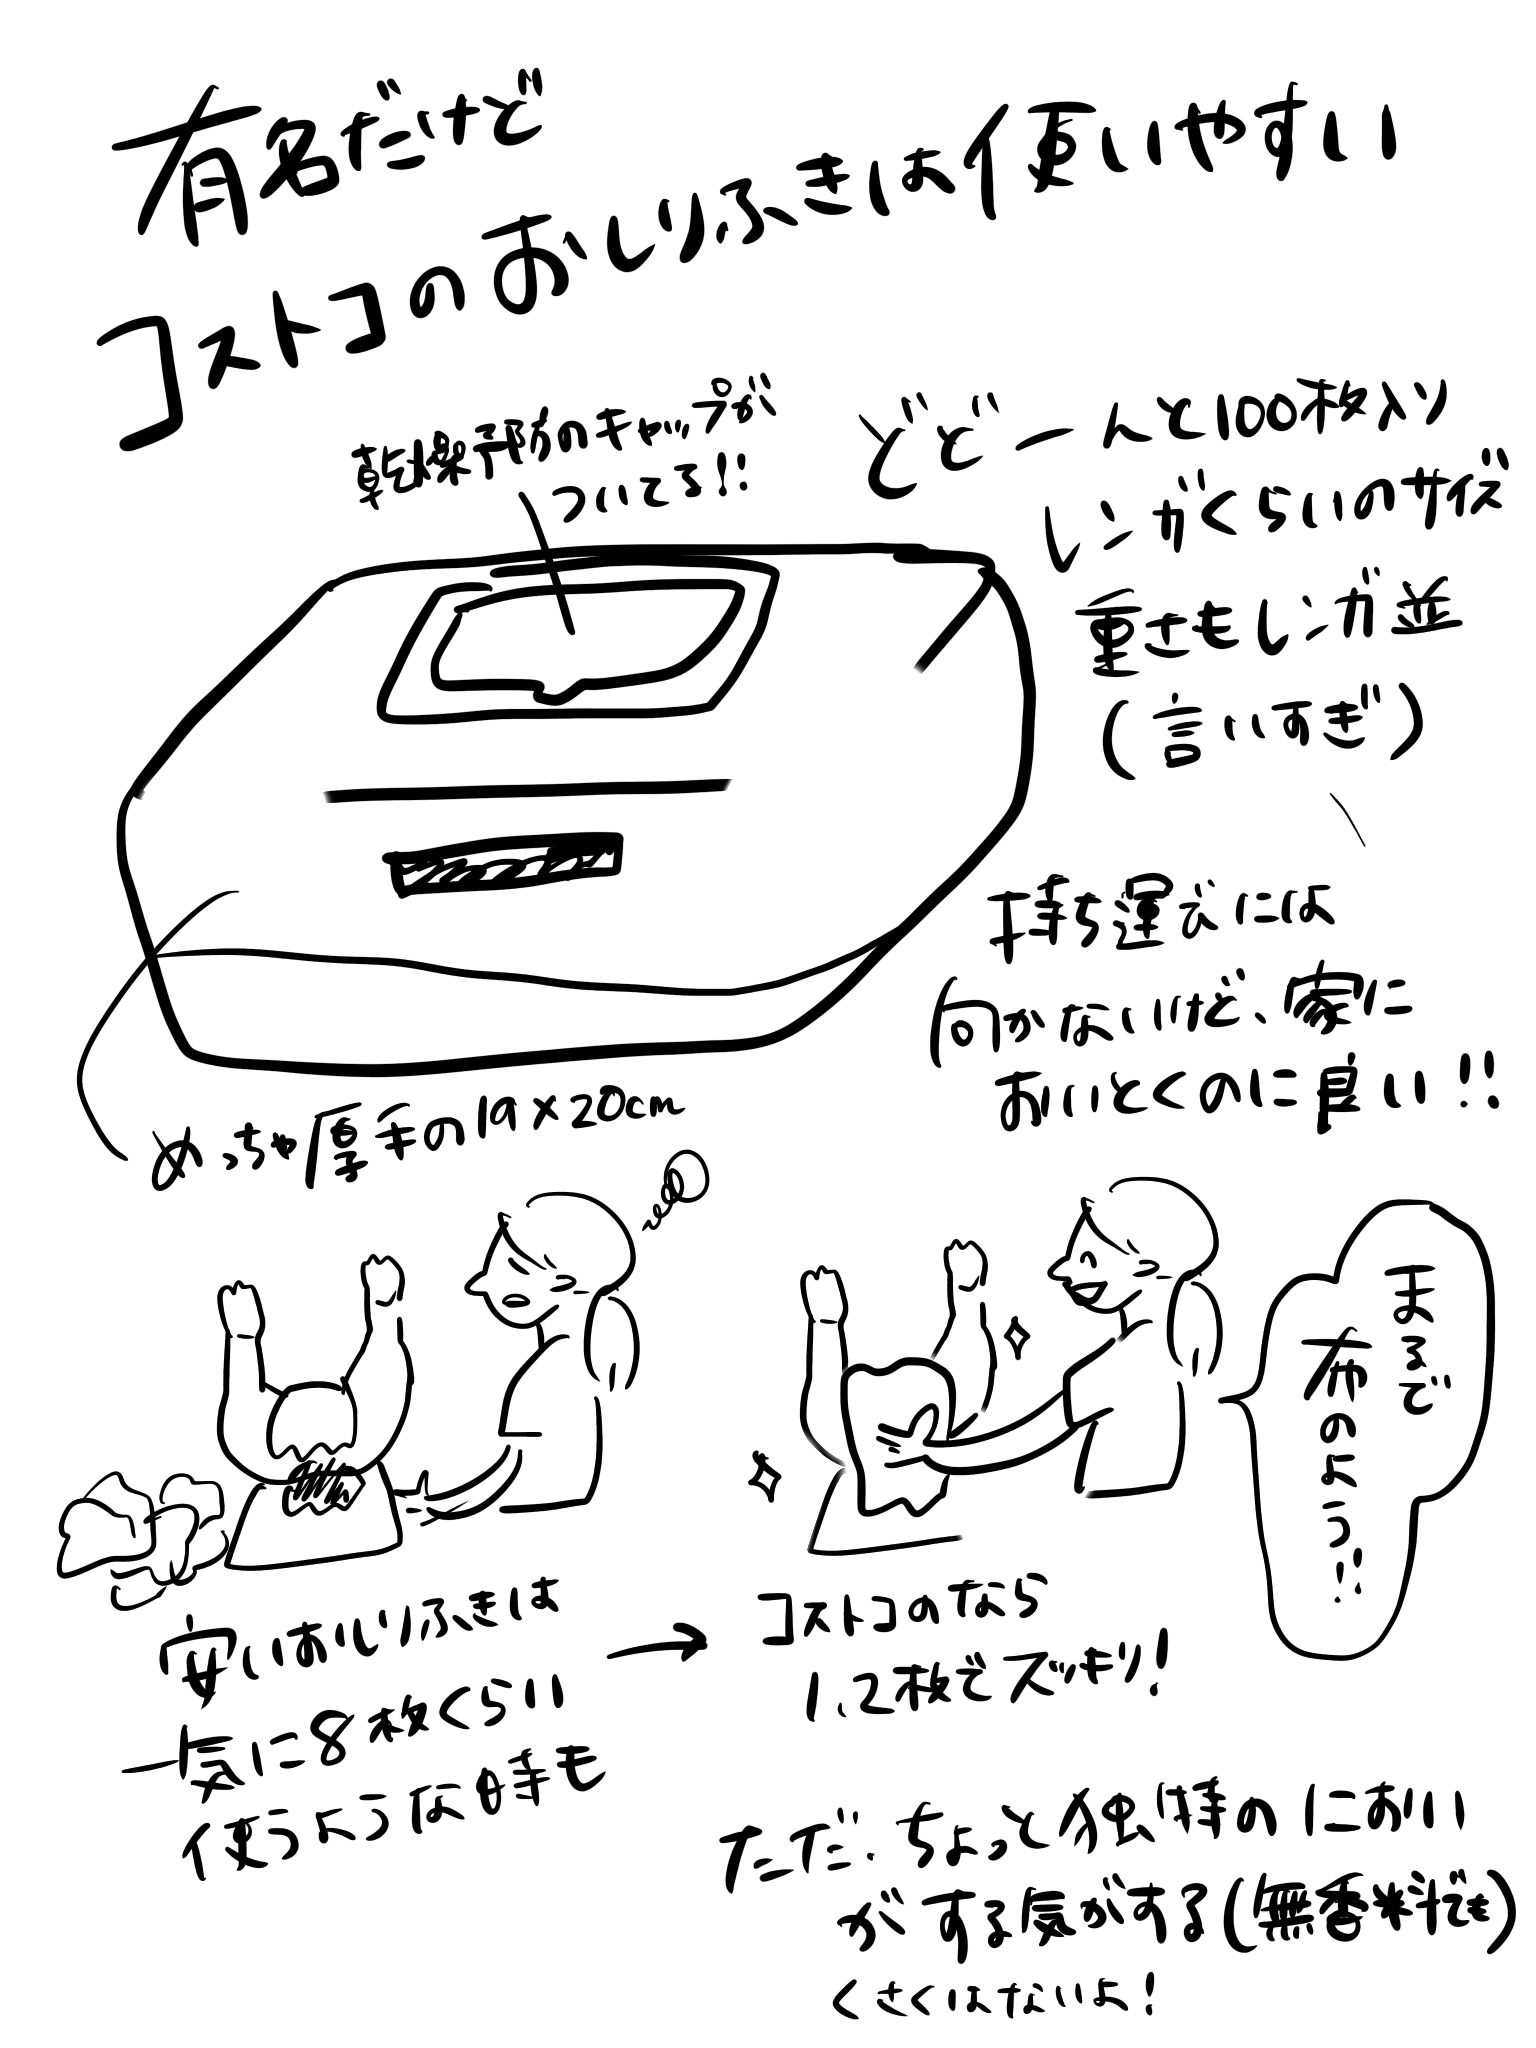 有名だけど
コストコのおしりふきは使いやすい
乾燥予防のキャップが
ついてる!!
どどーんと100枚入り
レンガくらいのサイズ
重さもレンガ並
(言いすぎ)
持ち運びには
向かないけど、家に
おいとくのに良い!!
めっちゃ厚手の19×20cm
まるで
布のよう!!
安いおしりふきは
一気に8枚くらい
使うような時も
→
コストコのなら
1、2枚でスッキリ!
ただ、ちょっと独特のにおい
がする気がする(無香料でも)
くさくはないよ!